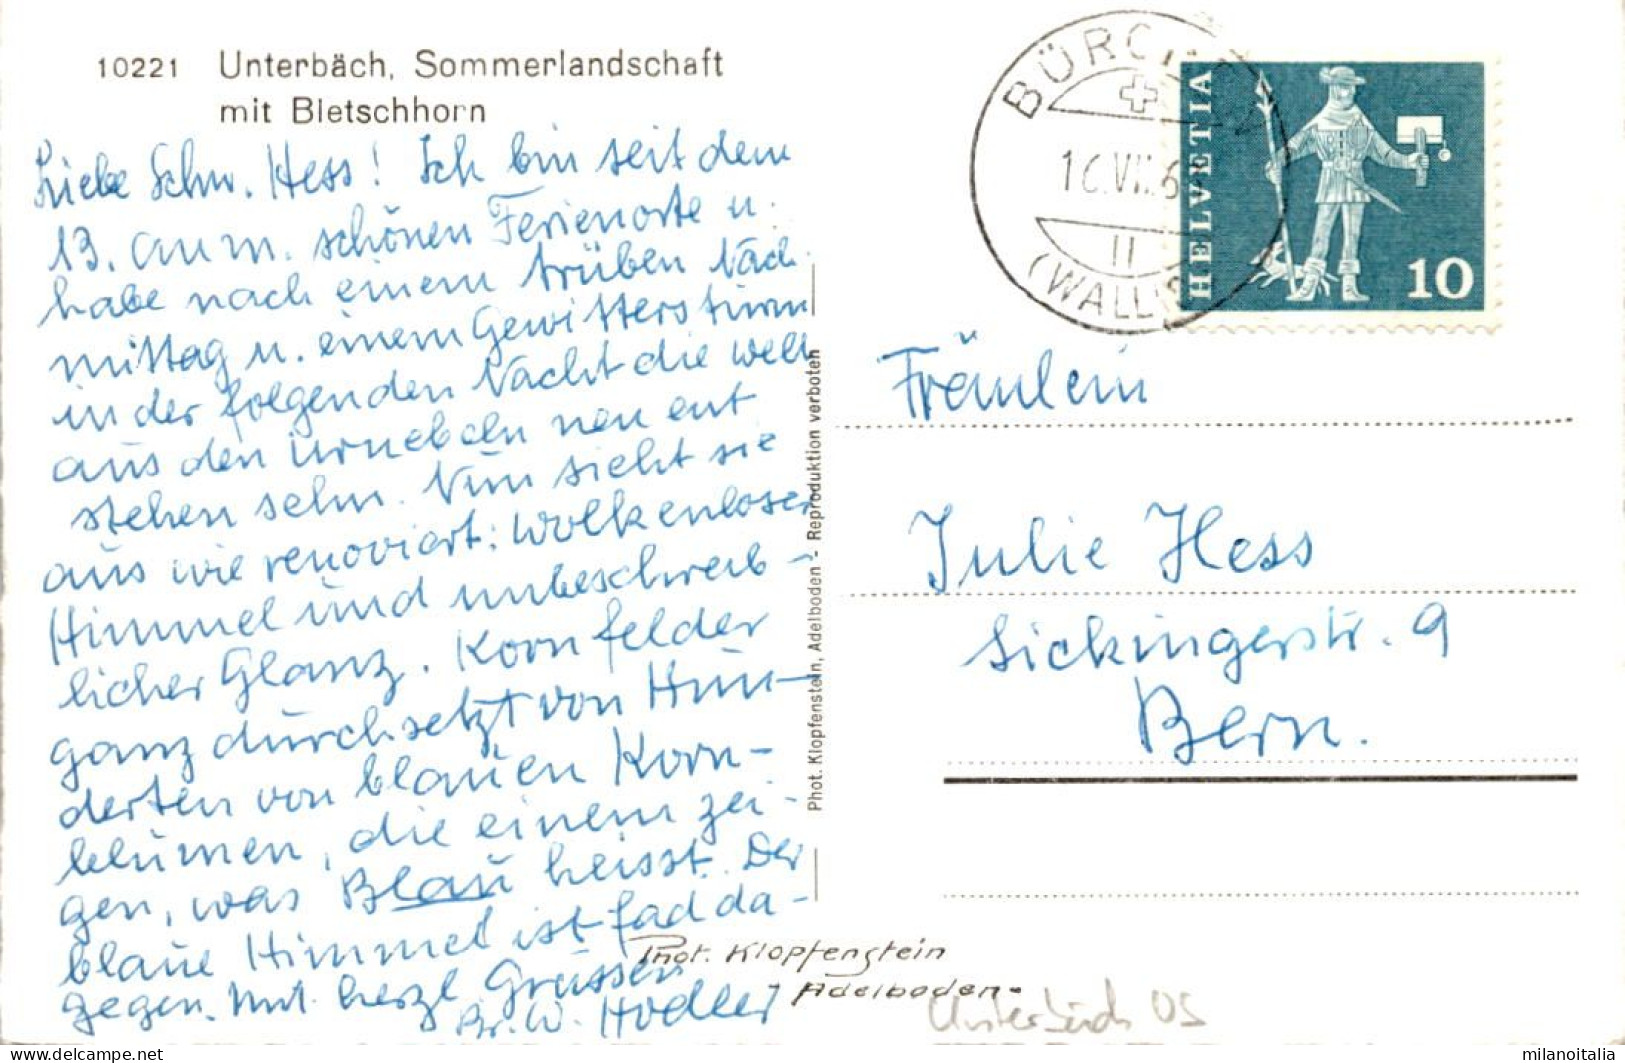 10221 Unterbäch, Sommerlandschaft
mit Bietschhorn
Liebe Schw. Hess! Ich bin seit dem
13. an m. schönen Ferienorte u.
habe nach einem trüben Nach-
mittag u. einem Gewittersturm
in der folgenden Nacht die Welt
aus den Urnebeln neu ent
stehen sehn. Nun sieht sie
aus wie renoviert: Wolkenloser
Himmel und unbeschreib-
licher Glanz. Kornfelder
ganz durchsetzt von Hun-
derten von blauen Korn-
blumen, die einem zei-
gen, was Blau heisst. Der
blaue Himmel ist fad da-
gegen. Mit herzl Grüssen
Br. W. Hodler
Phot. Klopfenstein, Adelboden - Reproduktion verboten
Phot. Klopfenstein
- Adelboden -
BÜRCHEN
16.VII.6
II
(WALLIS)
HELVETIA
10
Fräulein
Julie Hess
Sickingerstr. 9
Bern.
Unterbäch VS
delcampe.net
milanoitalia